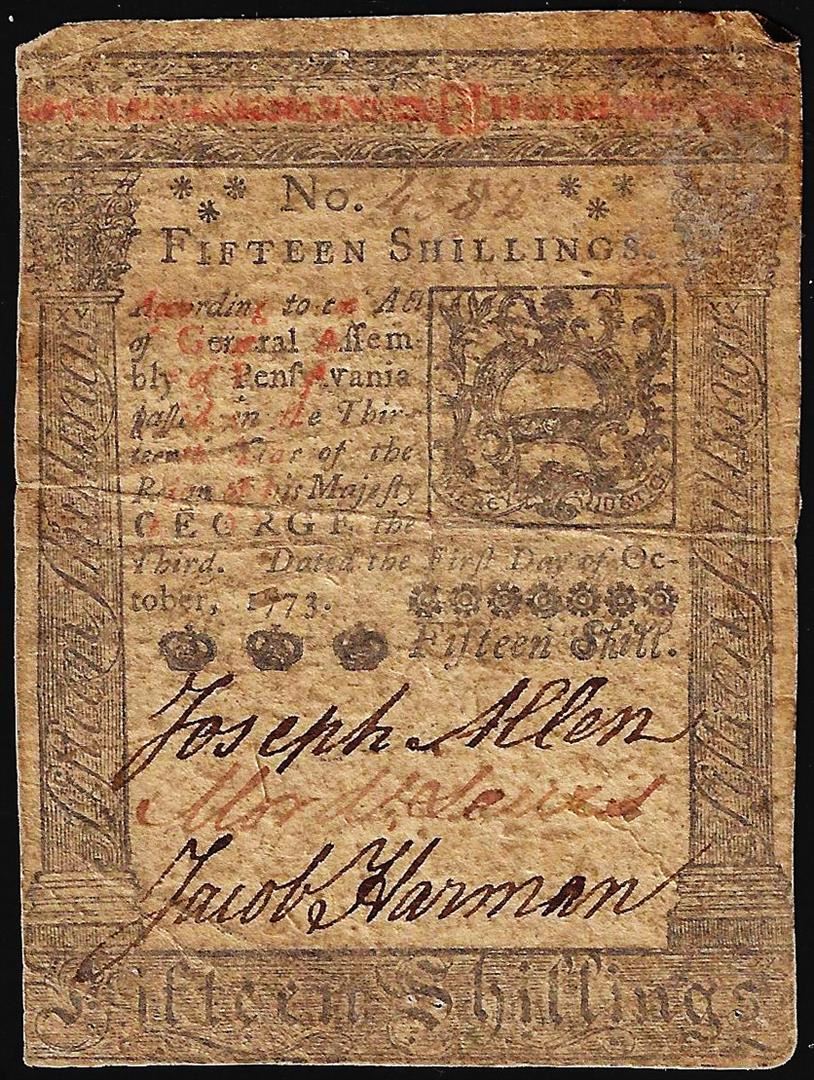 No. 4582
FIFTEEN SHILLINGS.
According to an Act
of General Assem-
bly of Penſylvania
paſſed in the Thir-
teenth Year of the
Reign of his Majeſty
GEORGE the
Third. Dated the Firſt Day of Oc-
tober, 1773.
Fifteen Shill.
XV
XV
Fifteen Shillings
Fifteen Shillings
Joseph Allen
Mord Lewis
Jacob Harman
Fifteen Shillings